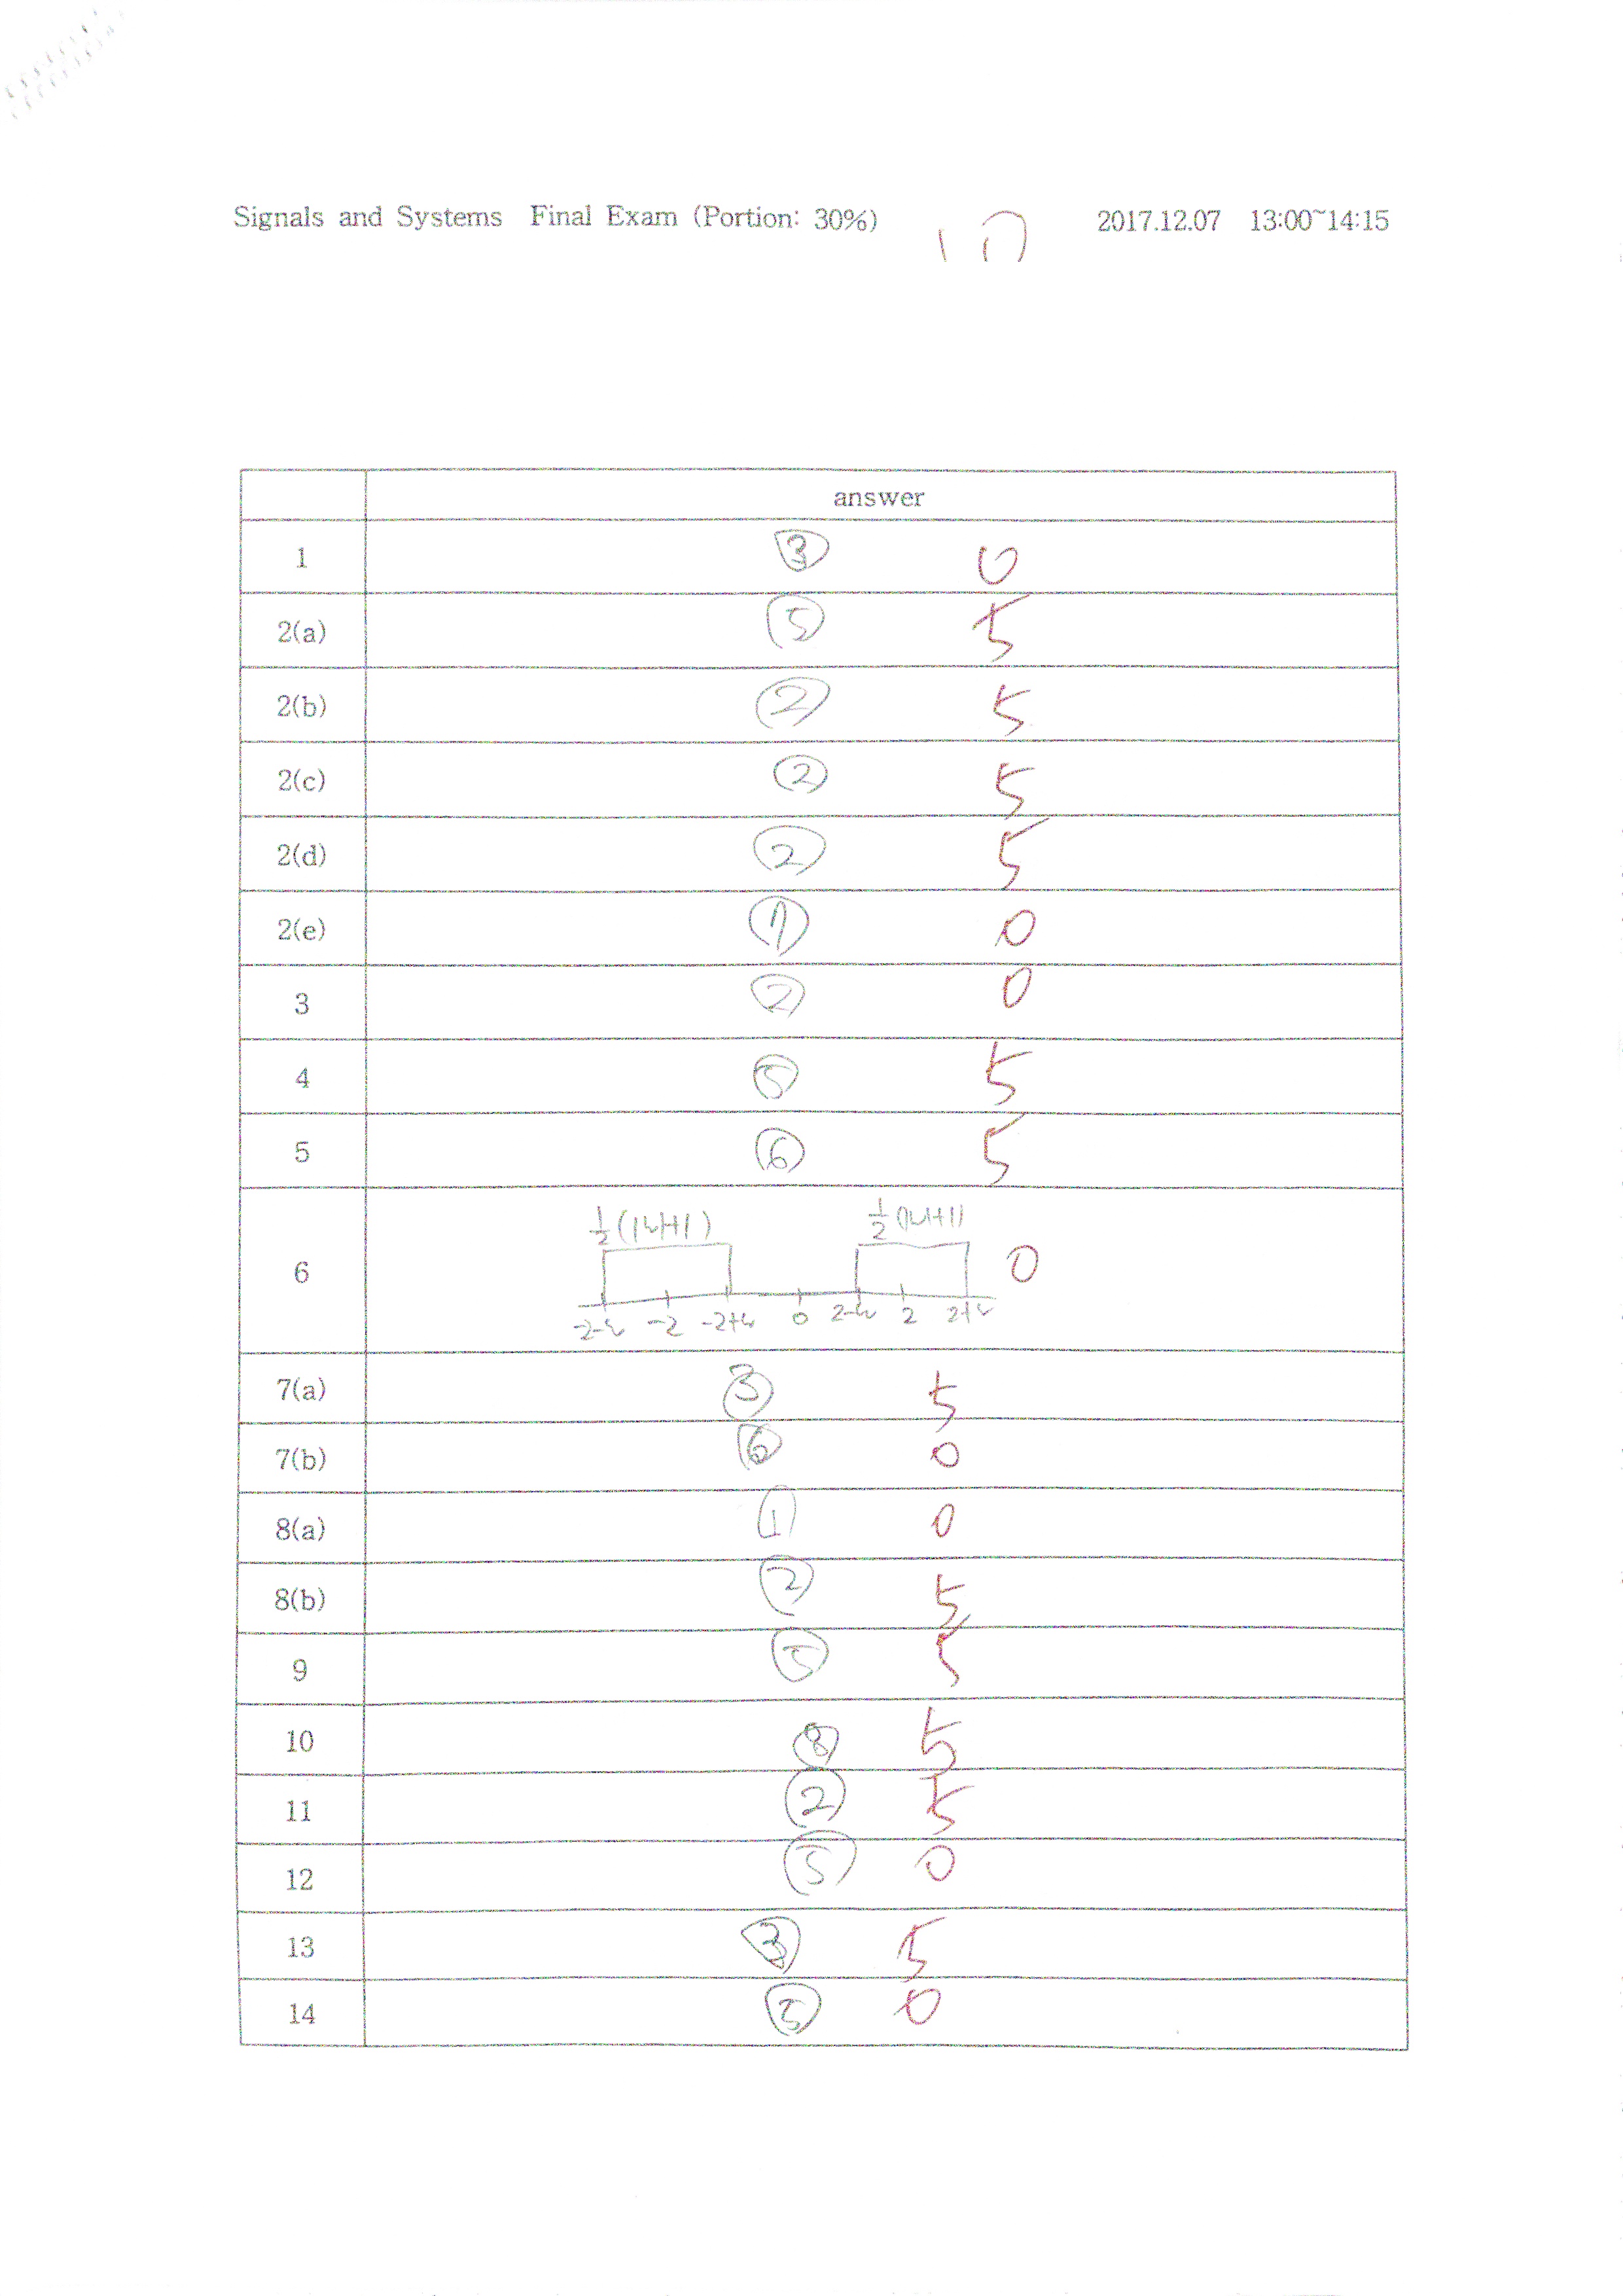 Signals and Systems Final Exam (Portion: 30%) 2017.12.07 13:00~14:15
answer
1 ③ 0
2(a) ⑤ 5
2(b) ② 5
2(c) ② 5
2(d) ② 5
2(e) ① 0
3 ② 0
4 ⑤ 5
5 ⑥ 5
1/2(|w|+1) 1/2(|w|+1)
6 0
-2-w -2 -2+w 0 2-w 2 2+w
7(a) ③ 5
7(b) ⑥ 0
8(a) ① 0
8(b) ② 5
9 ⑤ 5
10 ⑧ 5
11 ② 5
12 ⑤ 0
13 ③ 5
14 0